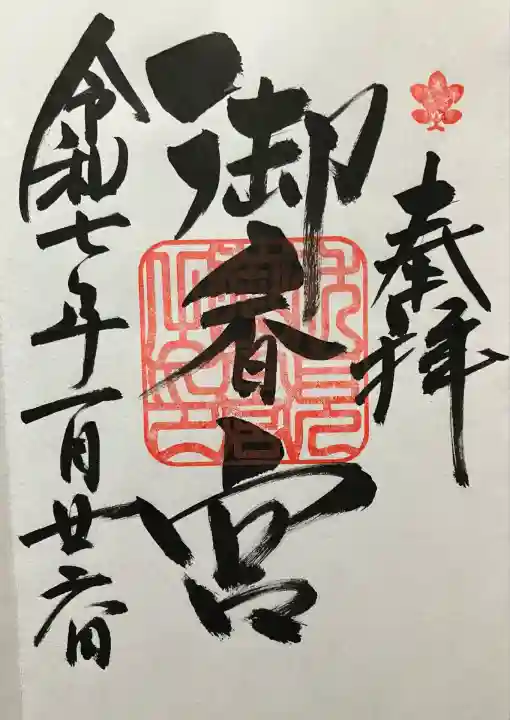 奉拝
御香宮
令和七年一月廿六日